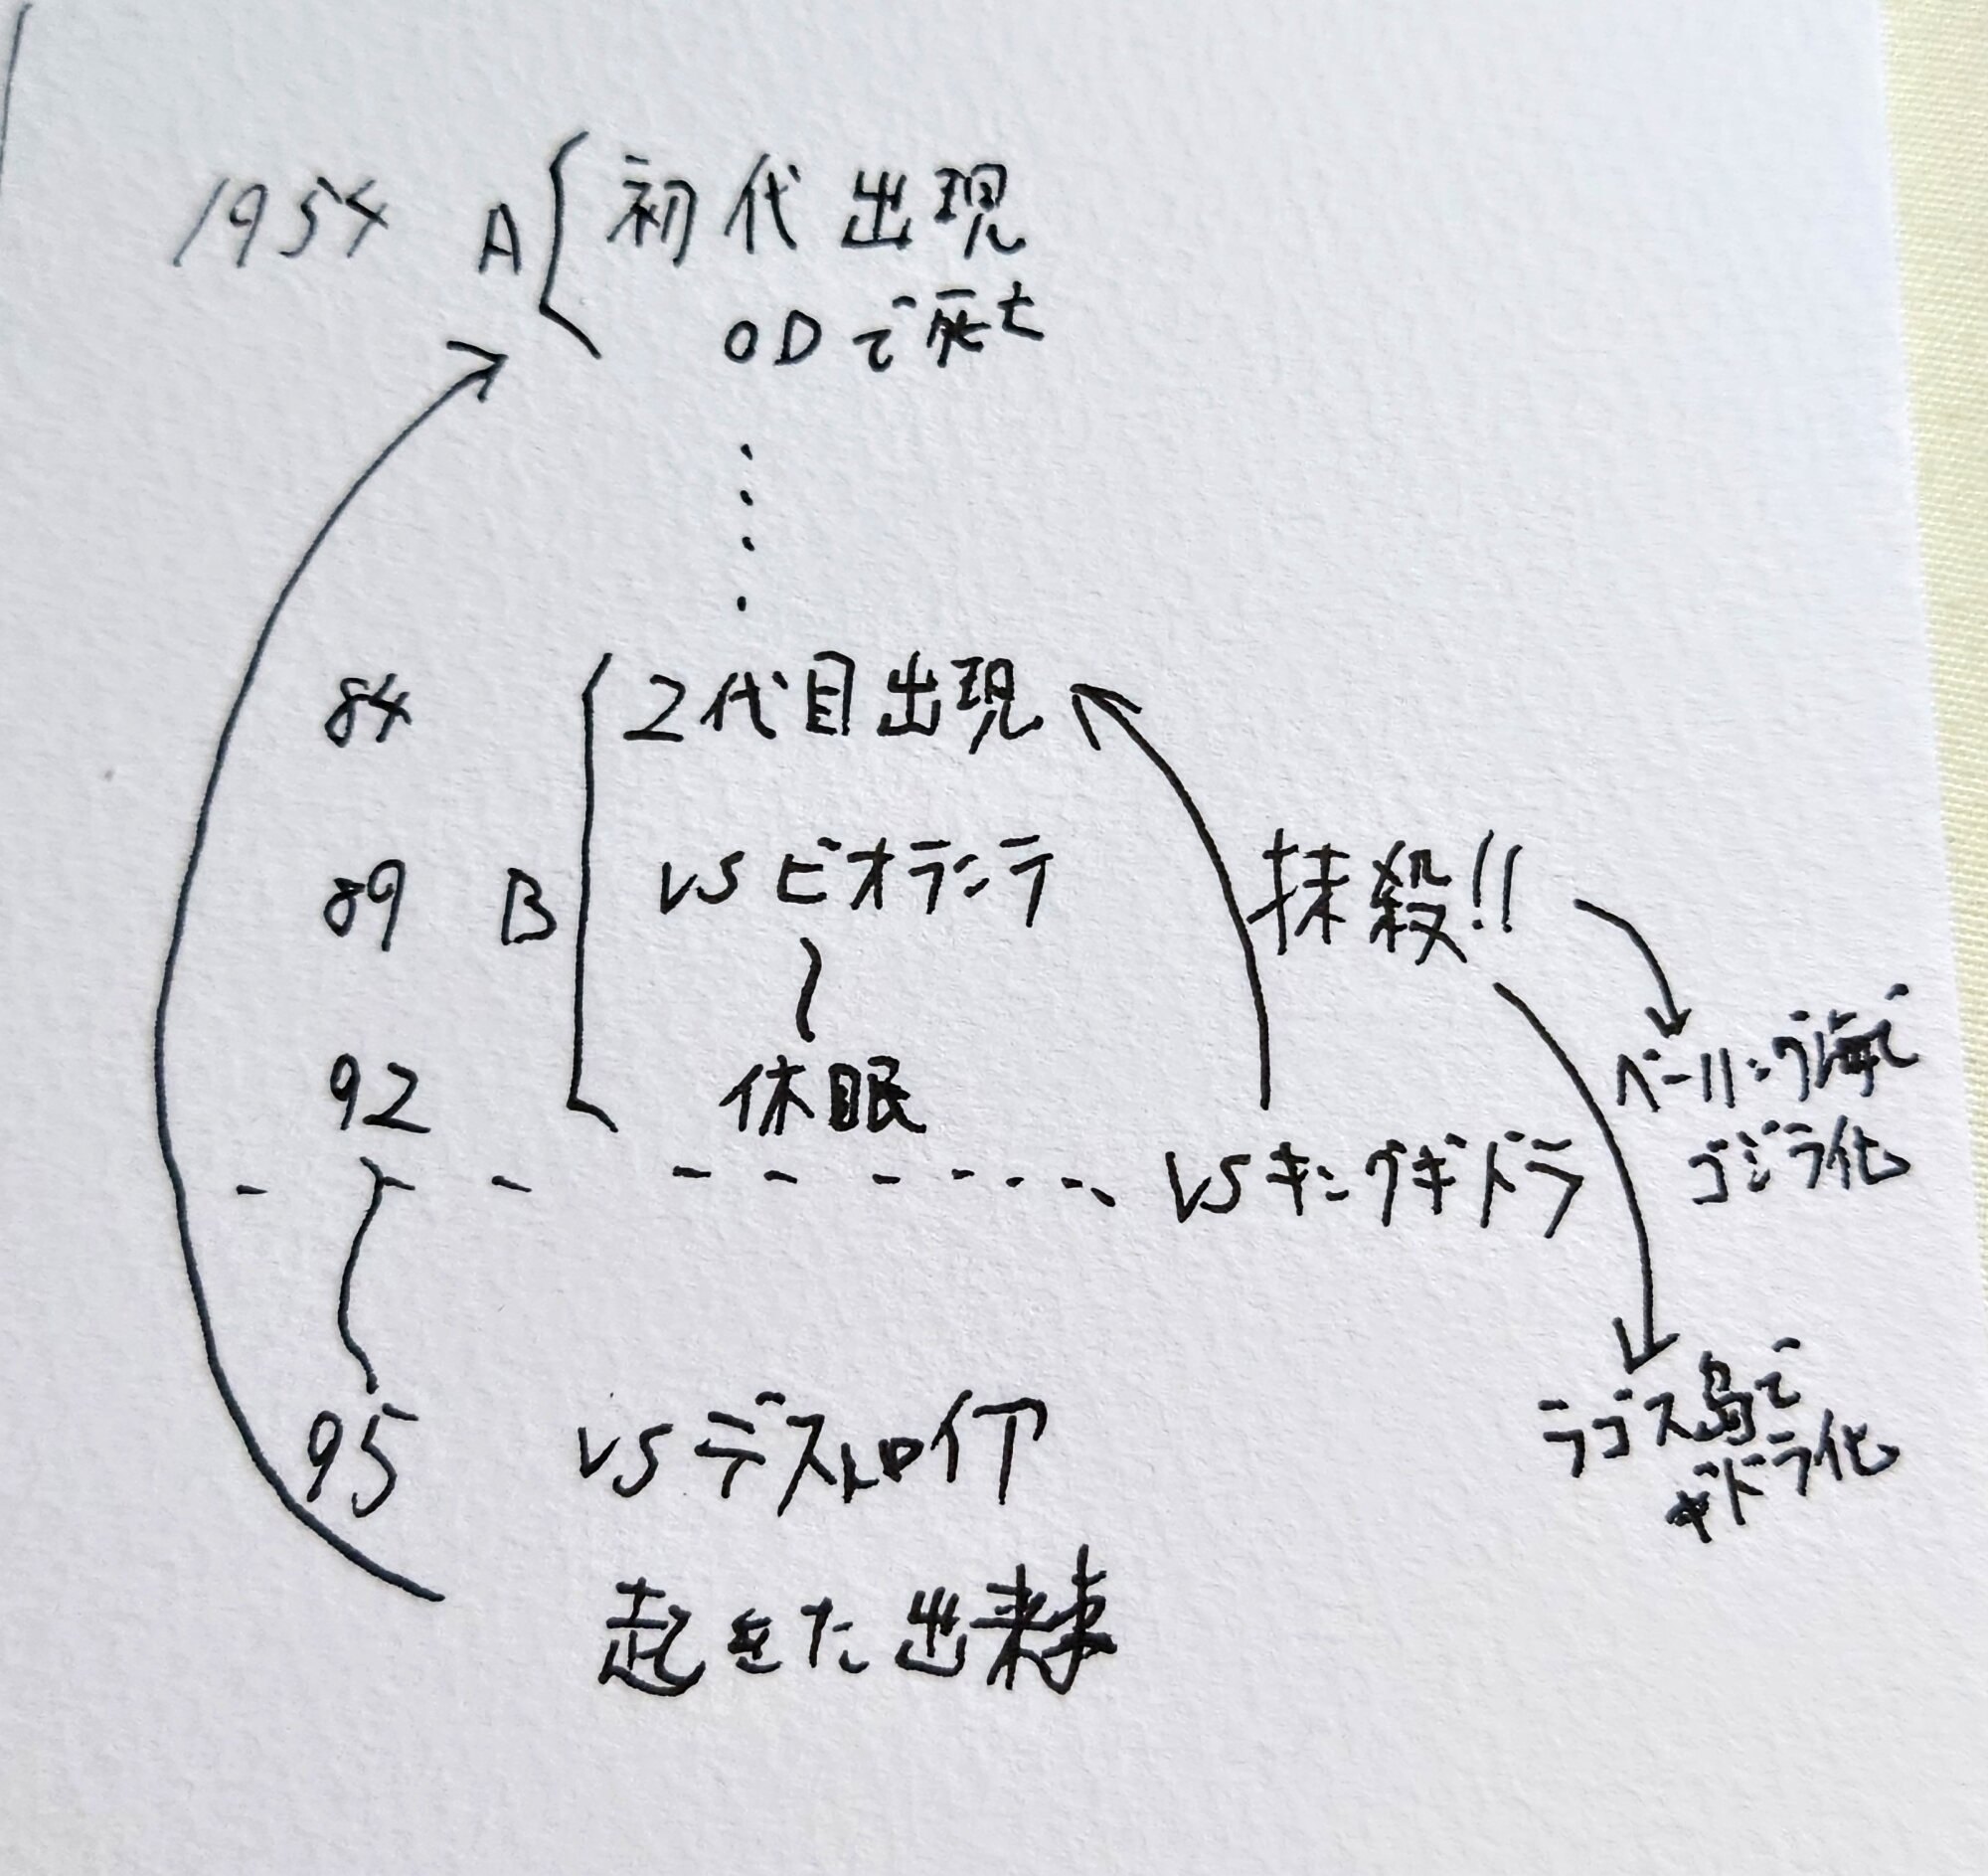 1954 A 初代出現
ODで死亡
84 2代目出現
89 B vsビオランテ
抹殺!!
92 休眠
ベーリング海で
ゴジラ化
vsキングギドラ
95 vsデストロイア
ラゴス島で
ギドラ化
起きた出来事